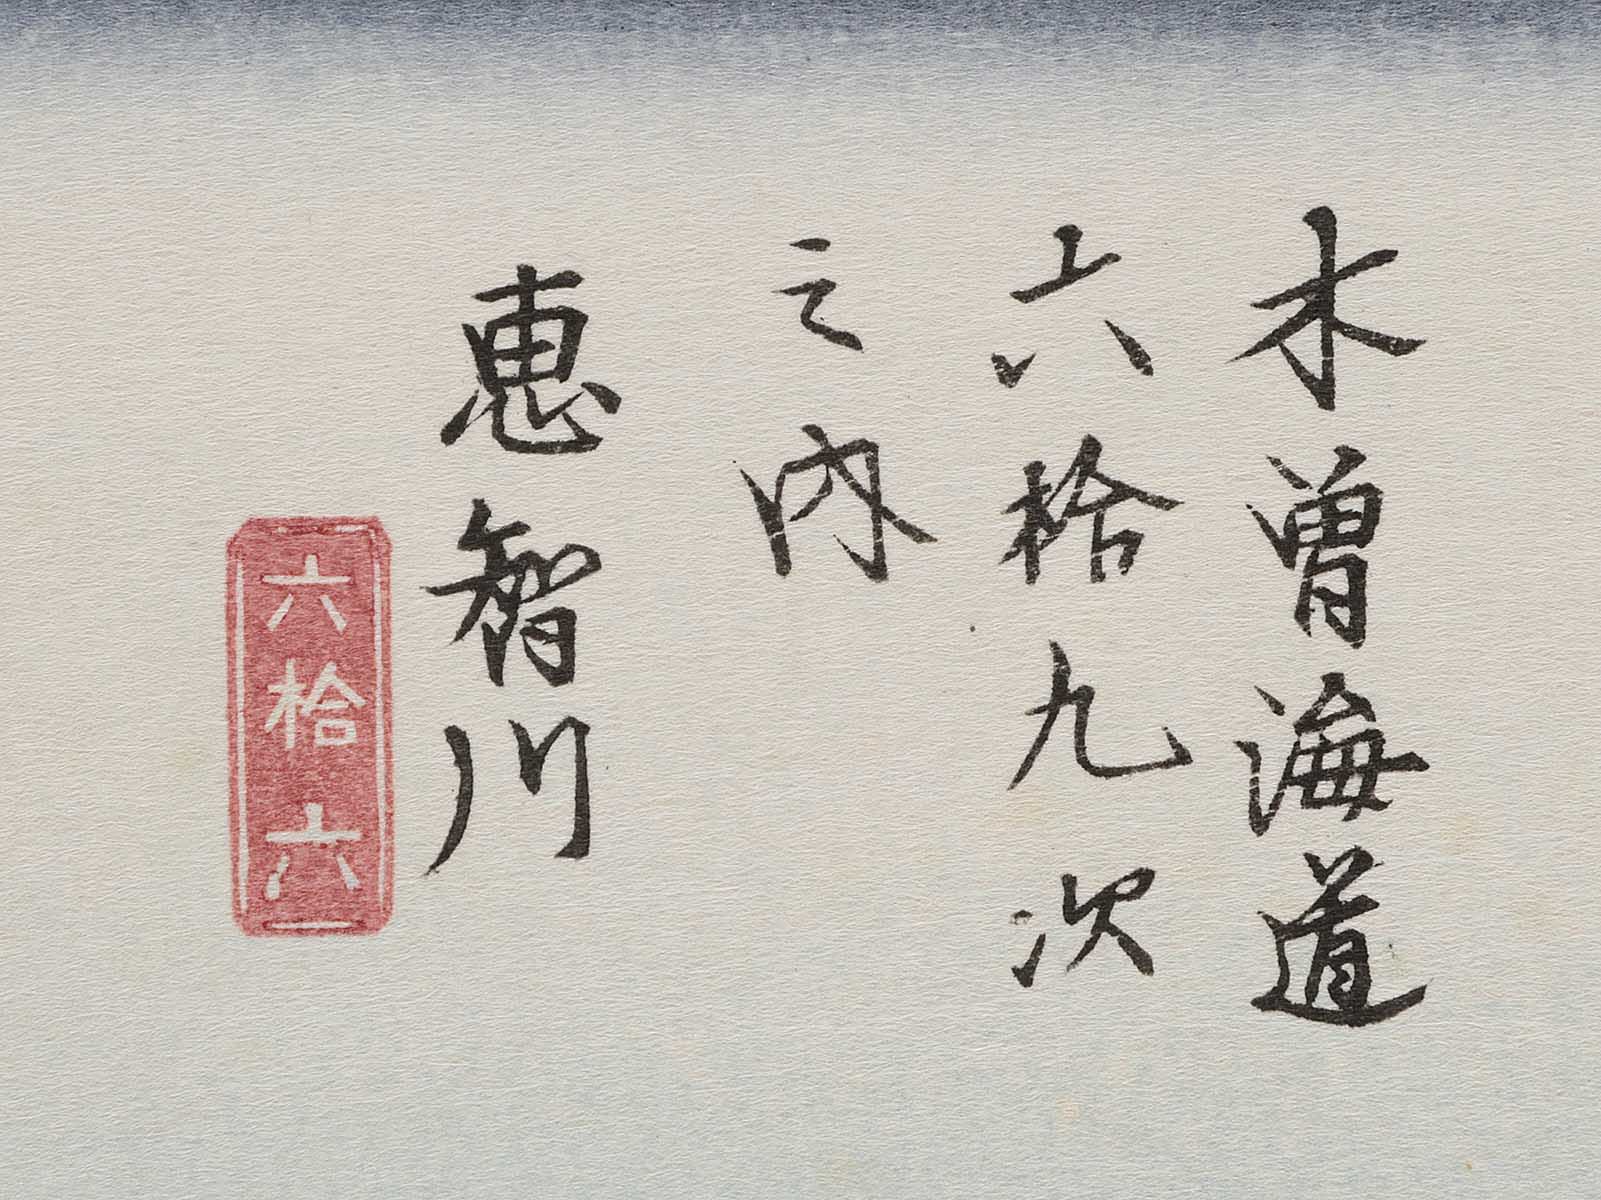 木曽海道
六拾九次
之内
恵智川
六拾六